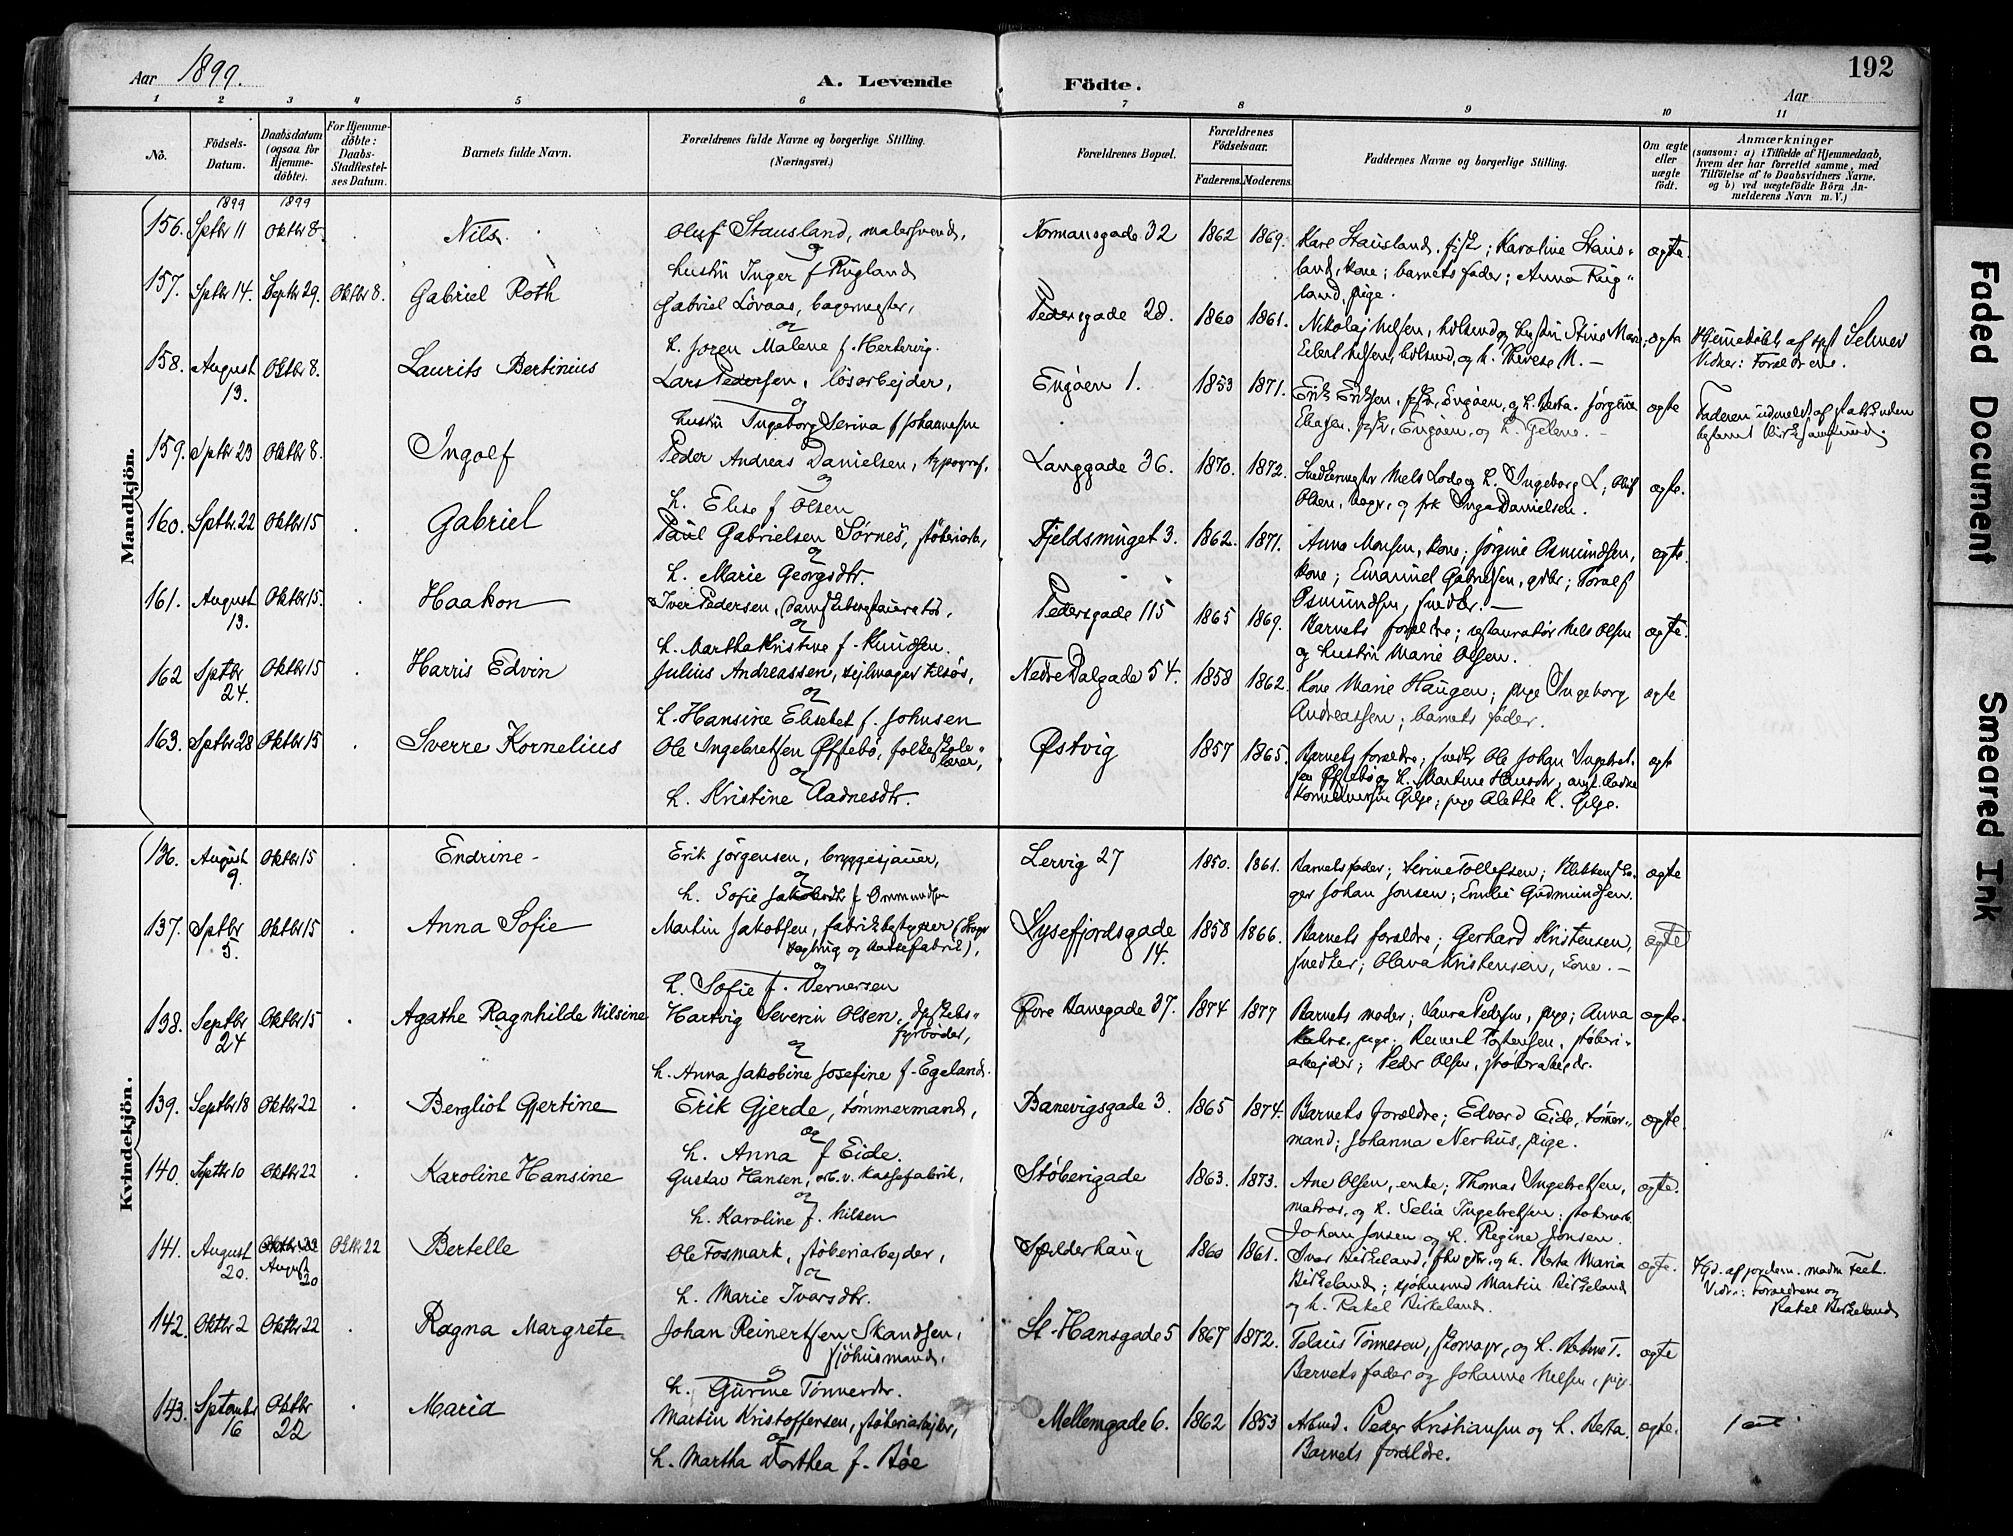 192
Aar 1899.
A. Levende Födte.
Aar
1 2 3 4 5 6 7 8 9 10 11
No.
Födsels-Datum.
Daabsdatum (ogsaa for Hjemme-döbte).
For Hjemme-döbte: Daabs-Stadfæstel-ses Datum.
Barnets fulde Navn.
Forældrenes fulde Navne og borgerlige Stilling. (Næringsvei.)
Forældrenes Bopæl.
Forældrenes Födselsaar.
Faderens. Moderens.
Faddernes Navne og borgerlige Stilling.
Om ægte eller uægte födt.
Anmærkninger
(saasom: a) i Tilfælde af Hjemmedaab, hvem der har forrettet samme, med Tilföielse af to Daabsvidners Navne. og b) ved uægtefödte Börn An-melderens Navn m. V.)
Mandkjön.
1899 1899
156. Sptbr 11 Oktbr 8. Nils. Oluf Stausland, malersvend, og hustru Inger f Rugland Normansgade 32 1862 1869. Kare Stausland, ; Karoline Staus-land, kone; barnets fader; Anna Rug-land, pige. ægte.
157. Sptbr 14. Septbr 29. Oktbr 8. Gabriel Roth Gabriel Lövaas, bagermester, og h. Joren Malene f. Hertervig. Pedersgade 28. 1860 1861. Nikolaj Nelsen, og hustru Stine Marie; og h. Therese N. — ægte Hjemmedöbt af Selmer Vidner: Forældrene.
158. August 13. Oktbr 8. Laurits Bertinius Lars Pedersen, lösarbejder, og hustru Ingeborg Serina f Johannesen Engöen 1. 1853 1871. Erik Eriksen, Engöen, og h. Berta. Jörgine Engöen, og h. — ægte Faderen udmeldt af statskirken
159. Sptbr 23 Oktbr 8. Ingolf Peder Andreas Danielsen, typograf, og h. Elise f Olsen Langgade 36. 1870. 1872. Snedkermester Nels Lode og h. Ingeborg L; Oluf Olsen, og frk Inga Danielsen. ægte.
160. Sptbr. 22 Oktbr 15 Gabriel Paul Gabrielsen Sörnes, stöberiarb., og h. Marie Georgsdtr. Fjeldsmuget 3. 1862. 1871. Anna Monsen, kone; Jörgine Osmundsen, kone; Emanuel Gabrielsen, ; Toralf Osmundsen, snedker. — ægte.
161. August 13. Oktbr 15. Haakon Iver Pedersen, og h. Martha Kristine f. Knudsen. Pedersgade 115 1865 1869. Barnets forældre; restauratör Nels Olsen og hustru Marie Olsen. ægte.
162 Sptbr 24. Oktbr 15 Harris Edvin Julius Andreassen, sejlmager tilsös, og h. Hansine Elisebet f. Johnsen Nedre Dalgade 54. 1858 1862. Kone Marie Haugen; pige Ingeborg Andreassen; barnets fader. ægte
163. Sptbr 28 Oktbr 15 Sverre Kornelius Ole Ingebretsen Øfstebö, folkeskole-lærer, og h. Kristine Aadnesdtr. Østvig 1857 1865. Barnets forældre; snedker Ole Johan Ingebret-sen Øfstebö og h. Martine Hansdtr; ungk. Aadne Gilje; pige Alethe K. Gilje. ægte
Kvindekjön.
136. August 9. Oktbr 15 Endrine - Erik Jörgensen, bryggesjauer, og h. Sofie Jakobsdtr f Ommundsen Lervig 27 1850. 1861. Barnets fader; Serine Tollefsen; Johan Jonsen; Emilie Gudmundsen. ægte
137. Sptbr 5. Oktbr 15 Anna Sofie Martin Jakobsen, fabrikbestyrer ( og kassefabrik), og h. Sofie f. Vernersen Lysefjordsgade 14. 1858 1866. Barnets forældre; Gerhard Kristensen, snedker; Olava Kristensen, kone. — ægte
138. Septbr 24 Oktbr 15 Agathe Ragnhilde Nilsine Hartvig Severin Olsen, dpskibs-fyrböder, og h. Anna Jakobine Josefine f. Egelands. Øvre Banegade 37. 1874 1877 Barnets moder; Laura Pedersen, pige; Anna pige; stöberi-arbejder; Peder Olsen, stöberiarbejdr. ægte.
139. Septbr 18 Oktbr 22 Bergliot Gjertine Erik Gjerde, tömmermand, og h. Anna f Eide. Banevigsgade 3. 1865 1874. Barnets forældre; Edvard Eide, tömmer-mand; Johanna Nerhus, pige. ægte.
140. Septbr 10 Oktbr 22 Karoline Hansine Gustav Hansen, arb. v. kassefabrik, og h. Karoline f. Nilsen Stöberigade 1863. 1873. Ane Olsen, enke; Thomas Ingebretsen, matros, og h. Selia Ingebretsen; Johan Jonsen og h. Regine Jonsen. ægte.
141. August 20. Oktbr 22 August 20 Oktbr 22 Bertelle Ole Fosmark, stöberiarbejder, og h. Marie Ivarsdtr. Spelderhaug 1860 1861. Ivar Birkeland, og h. Berta Maria Birkeland; sjömand Martin Birkeland og h. Rakel Birkeland. ægte. Hjd. af jordem. madm Vidner: Forældrene og Rakel Birkeland
142. Oktbr 2 Oktbr 22 Ragna Margrete Johan Reinertsen Skandsen, sjöhusmand, og h. Gurine Tönnesdtr. St. Hansgade 5 1867 1872. Tönnesen, og h. T. Barnets fader og Johanne Nelsen, pige. ægte
143. Septembr 16 Oktbr 22 Maria Martin Kristoffersen, stöberiarbejder, og h. Martha Dorthea f. Böe Mellemgade 6. 1862 1853 Arbmd. Peder Kristiansen og h. Berta. Barnets forældre. ægte.
Faded Document
Smeared Ink